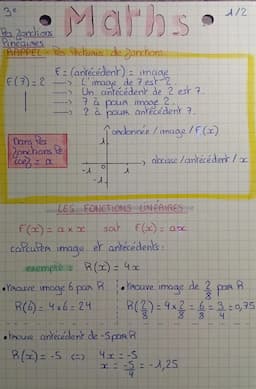 3e
Maths
1/2
Les fonctions
linéaires
RAPPEL - Les notions de fonctions
F : (antécédent) = image
F(7) = 2
→ L'image de 7 est 2.
→ Un antécédent de 2 est 7.
→ 7 a pour image 2.
→ 2 a pour antécédent 7.
ordonnée / image / F(x)
Dans les
fonctions le
= x
1
-1
1
-1
abscisse / antécédent / x
LES FONCTIONS LINÉAIRES
F(x) = a × x soit F(x) = ax
calculer image et antécédents :
exemple : R(x) = 4x
• trouve image 6 par R
• trouve image de 2/8 par R
R(6) = 4 × 6 = 24
R(2/8) = 4 × 2/8 = 6/8 = 3/4 = 0,75
• trouve antécédent de -5 par R
R(x) = -5 <=> 4x = -5
x = -5/4 = -1,25